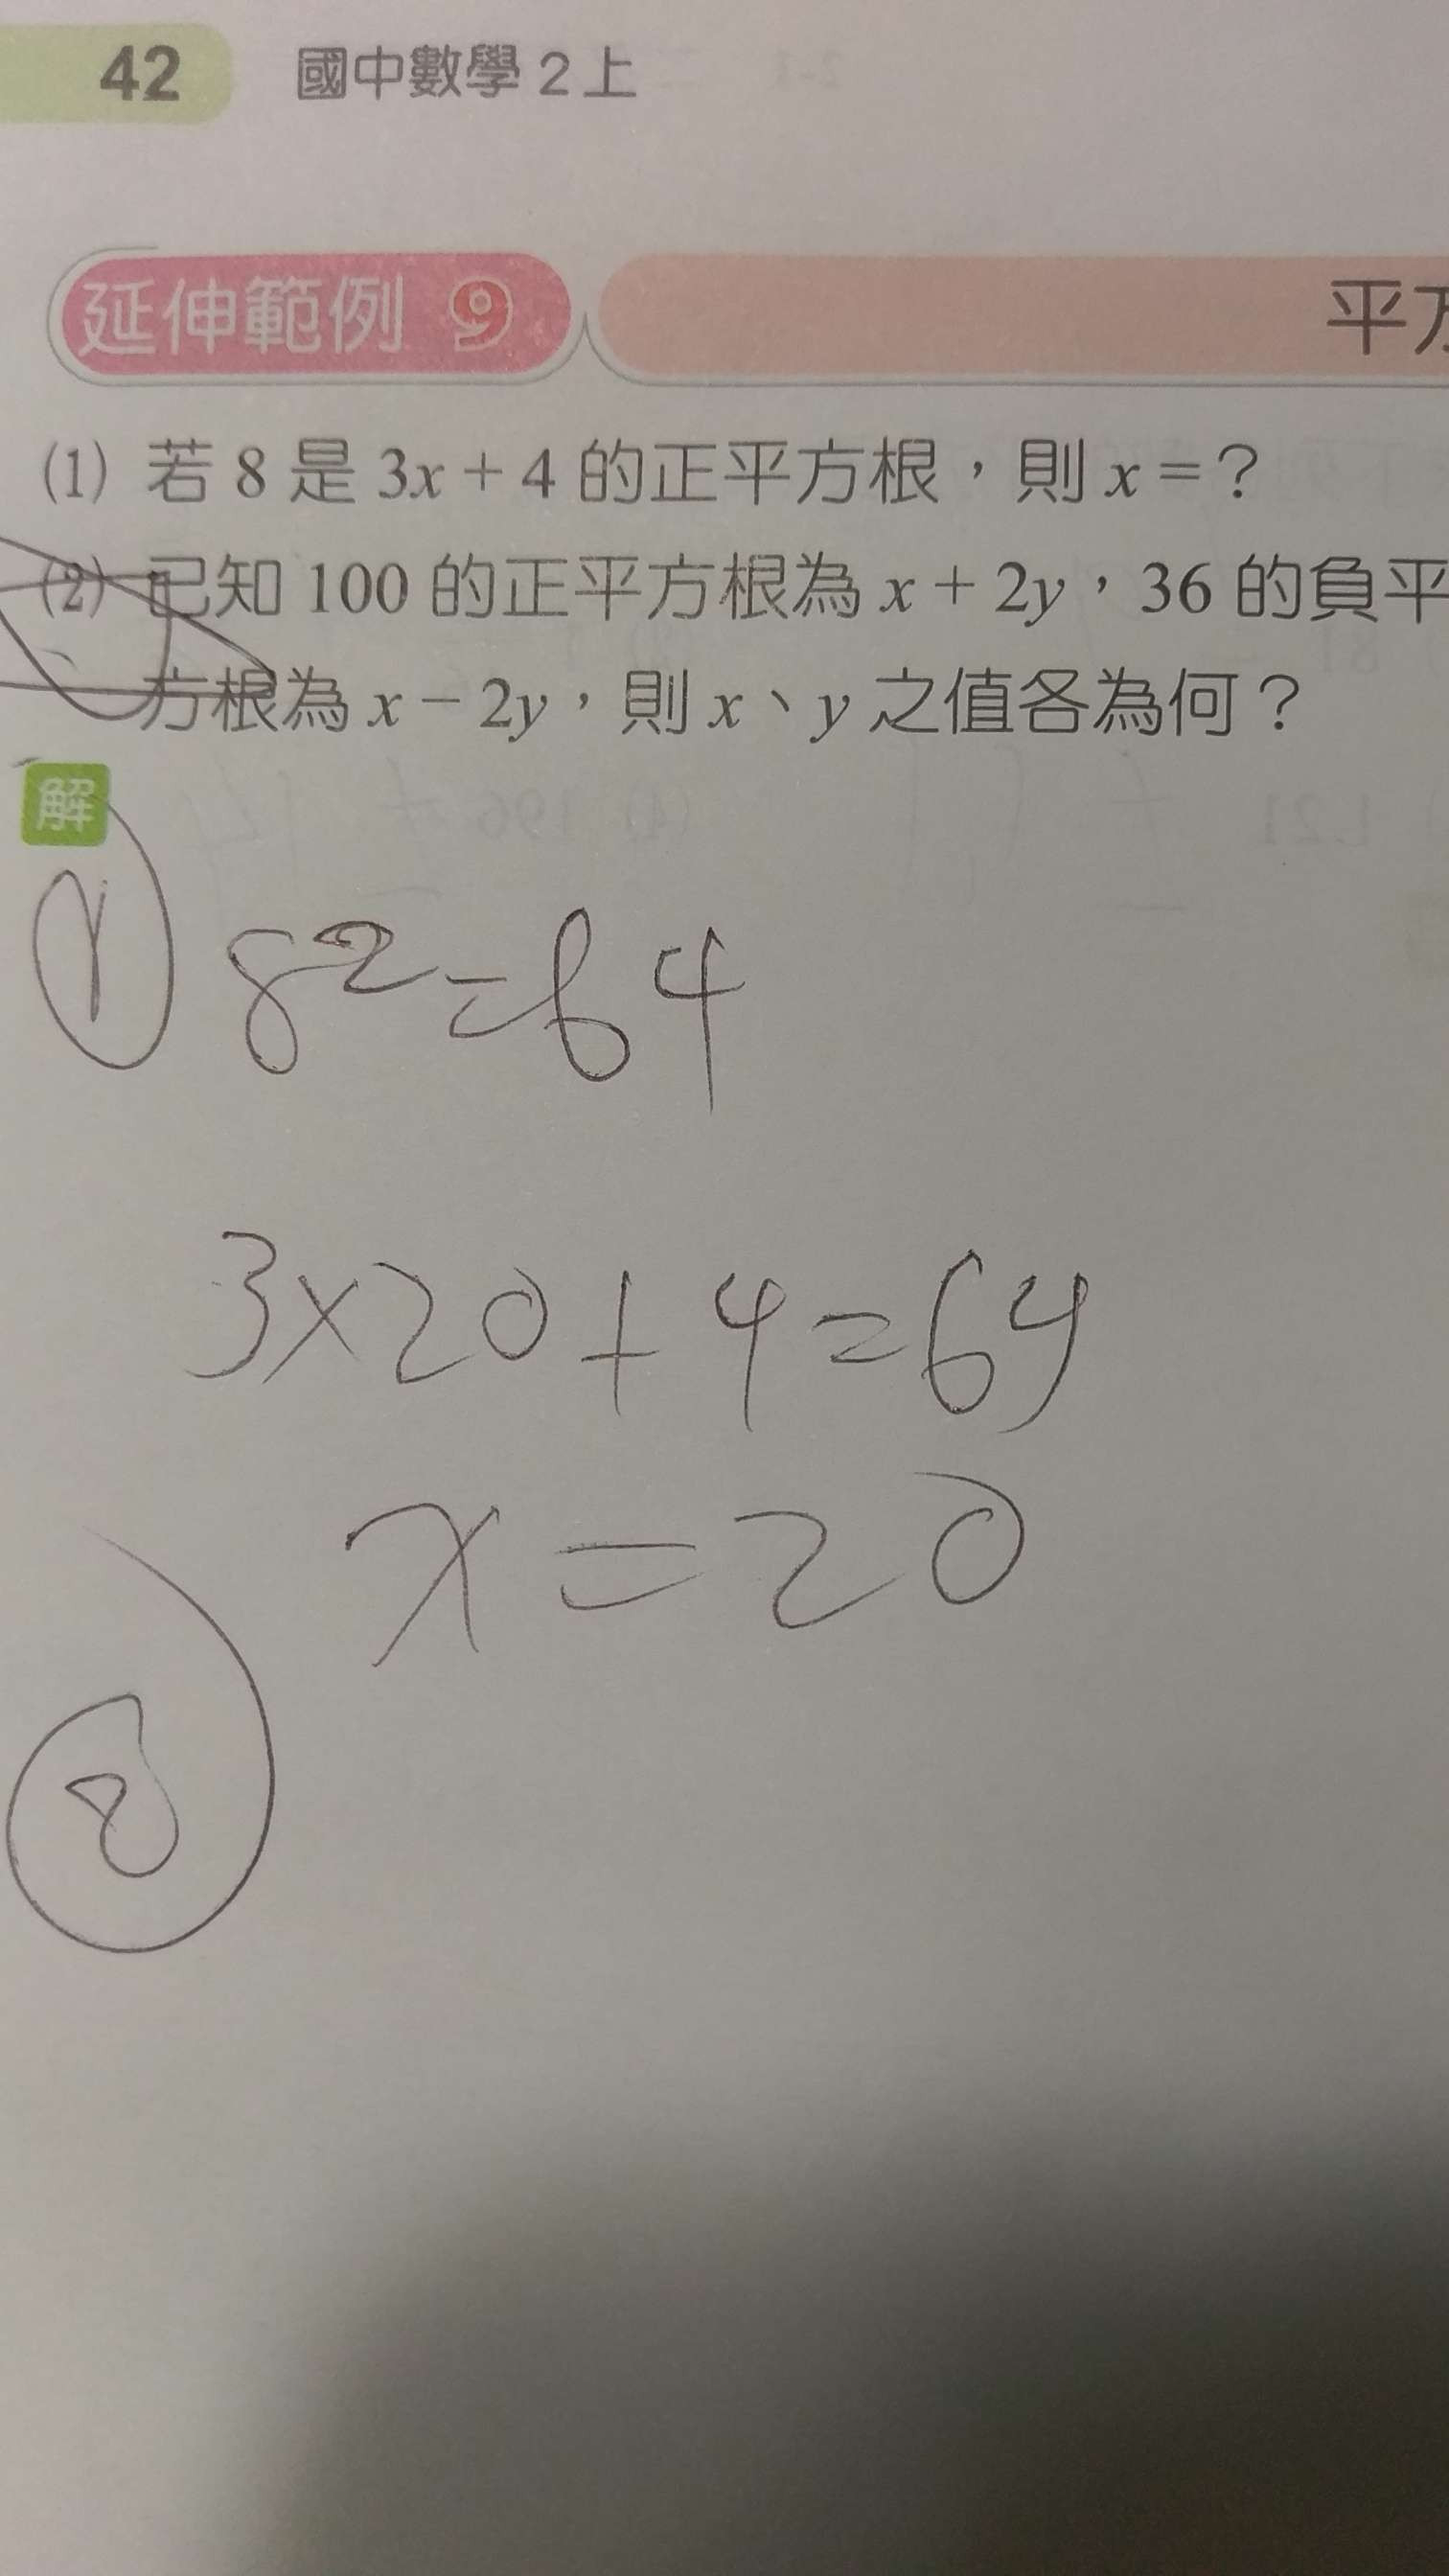 42 國中數學 2 上
延伸範例 9 平方
(1) 若 8 是 3x + 4 的正平方根,則 x = ?
(2) 已知 100 的正平方根為 x + 2y,36 的負平
方根為 x − 2y,則 x、y 之值各為何?
解
1 8²=64
3×20+4=64
x=20
2